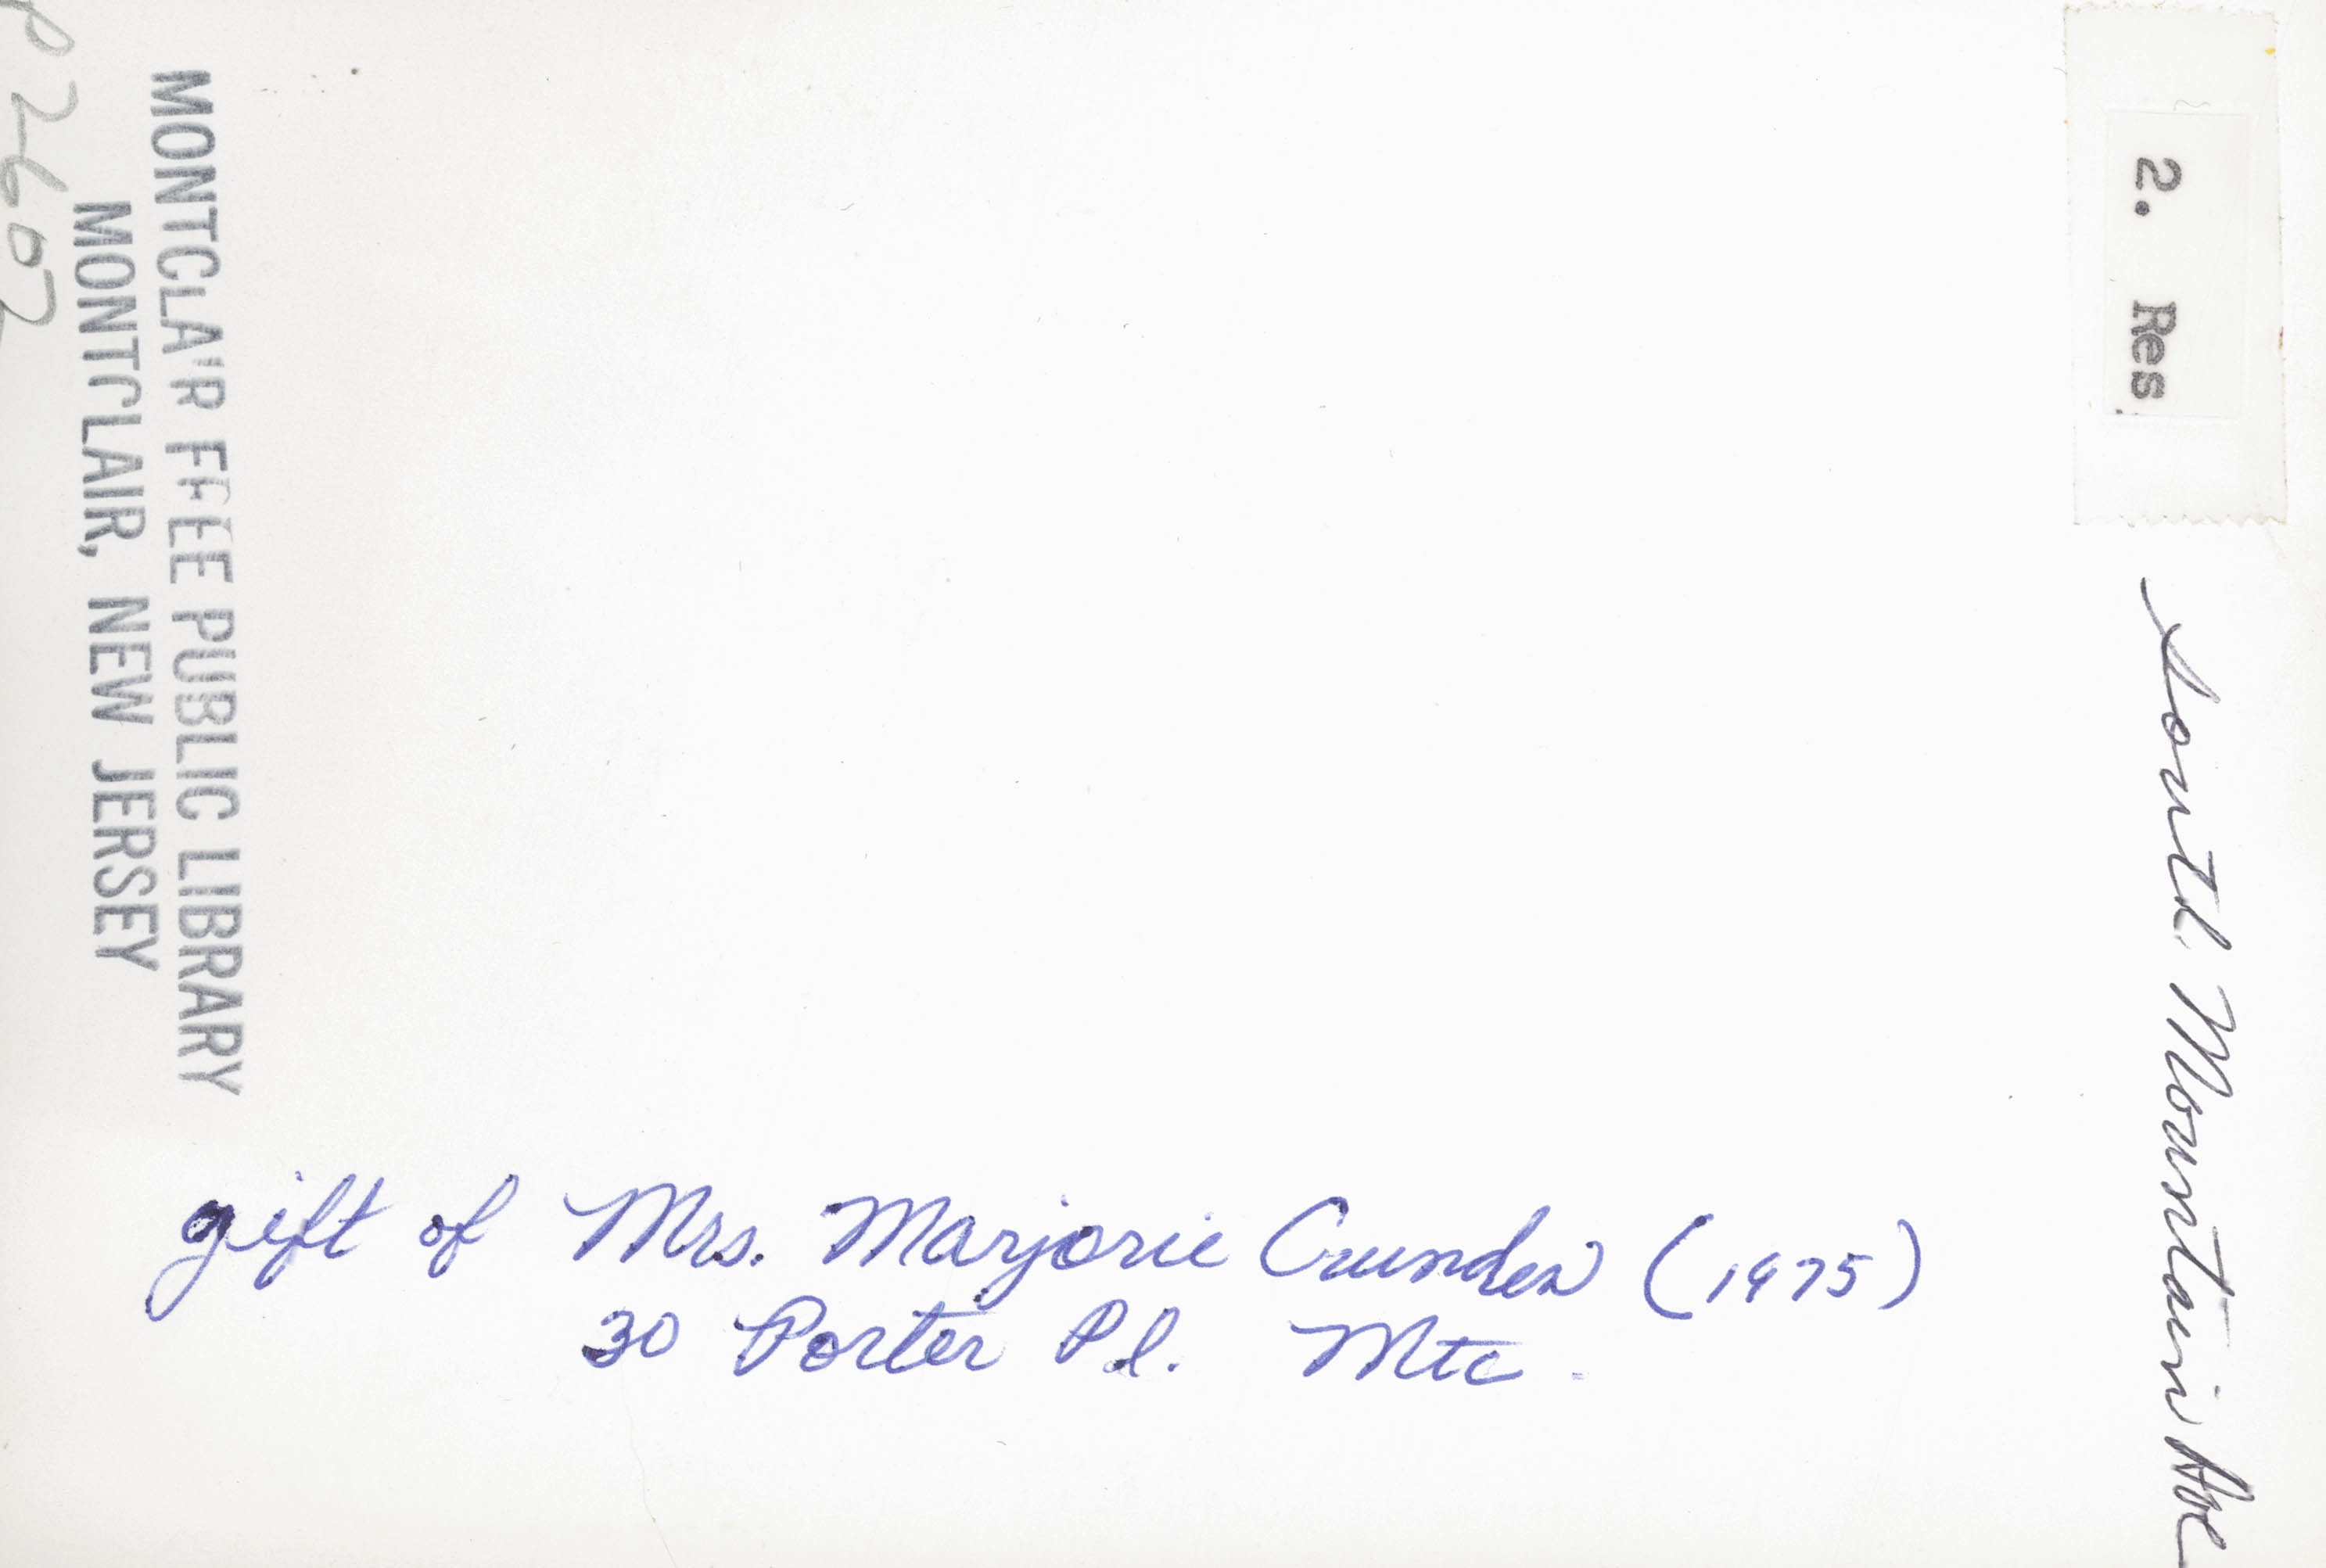 2. Res.
South Mountain Ave
MONTCLAIR FREE PUBLIC LIBRARY
MONTCLAIR, NEW JERSEY
P2607
gift of Mrs. Marjorie Crunden (1975)
30 Porter Pl. Mtc.